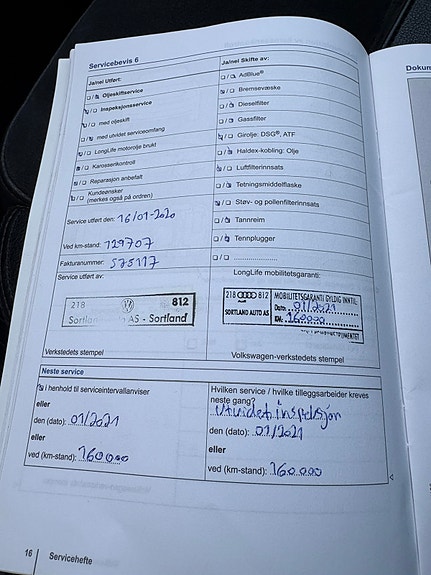 Servicebevis 6
Ja/nei Utført:
Oljeskiftservice
Inspeksjonsservice
med oljeskift
med utvidet serviceomfang
LongLife motorolje brukt
Karosserikontroll
Reparasjon anbefalt
Kundeønsker
(merkes også på ordren)
Service utført den: 16/01-2020
Ved km-stand: 129707
Fakturanummer: 575117
Service utført av:
218 812
Sortland AS - Sortland
Verkstedets stempel
Ja/nei Skifte av:
AdBlue®
Bremsevæske
Dieselfilter
Gassfilter
Girolje: DSG®, ATF
Haldex-kobling: Olje
Luftfilterinnsats
Tetningsmiddelflaske
Støv- og pollenfilterinnsats
Tannreim
Tennplugger
LongLife mobilitetsgaranti:
218 812
SORTLAND AUTO AS
MOBILITETSGARANTI GYLDIG INNTIL:
Dato: 01/2021
KM: 160000
Volkswagen-verkstedets stempel
Neste service
I henhold til serviceintervallanviser
eller
den (dato): 01/2021
eller
ved (km-stand): 160000
Hvilken service / hvilke tilleggsarbeider kreves
neste gang?
Utvidet inspeksjon
den (dato): 01/2021
eller
ved (km-stand): 160000
16 Servicehefte
Dokum